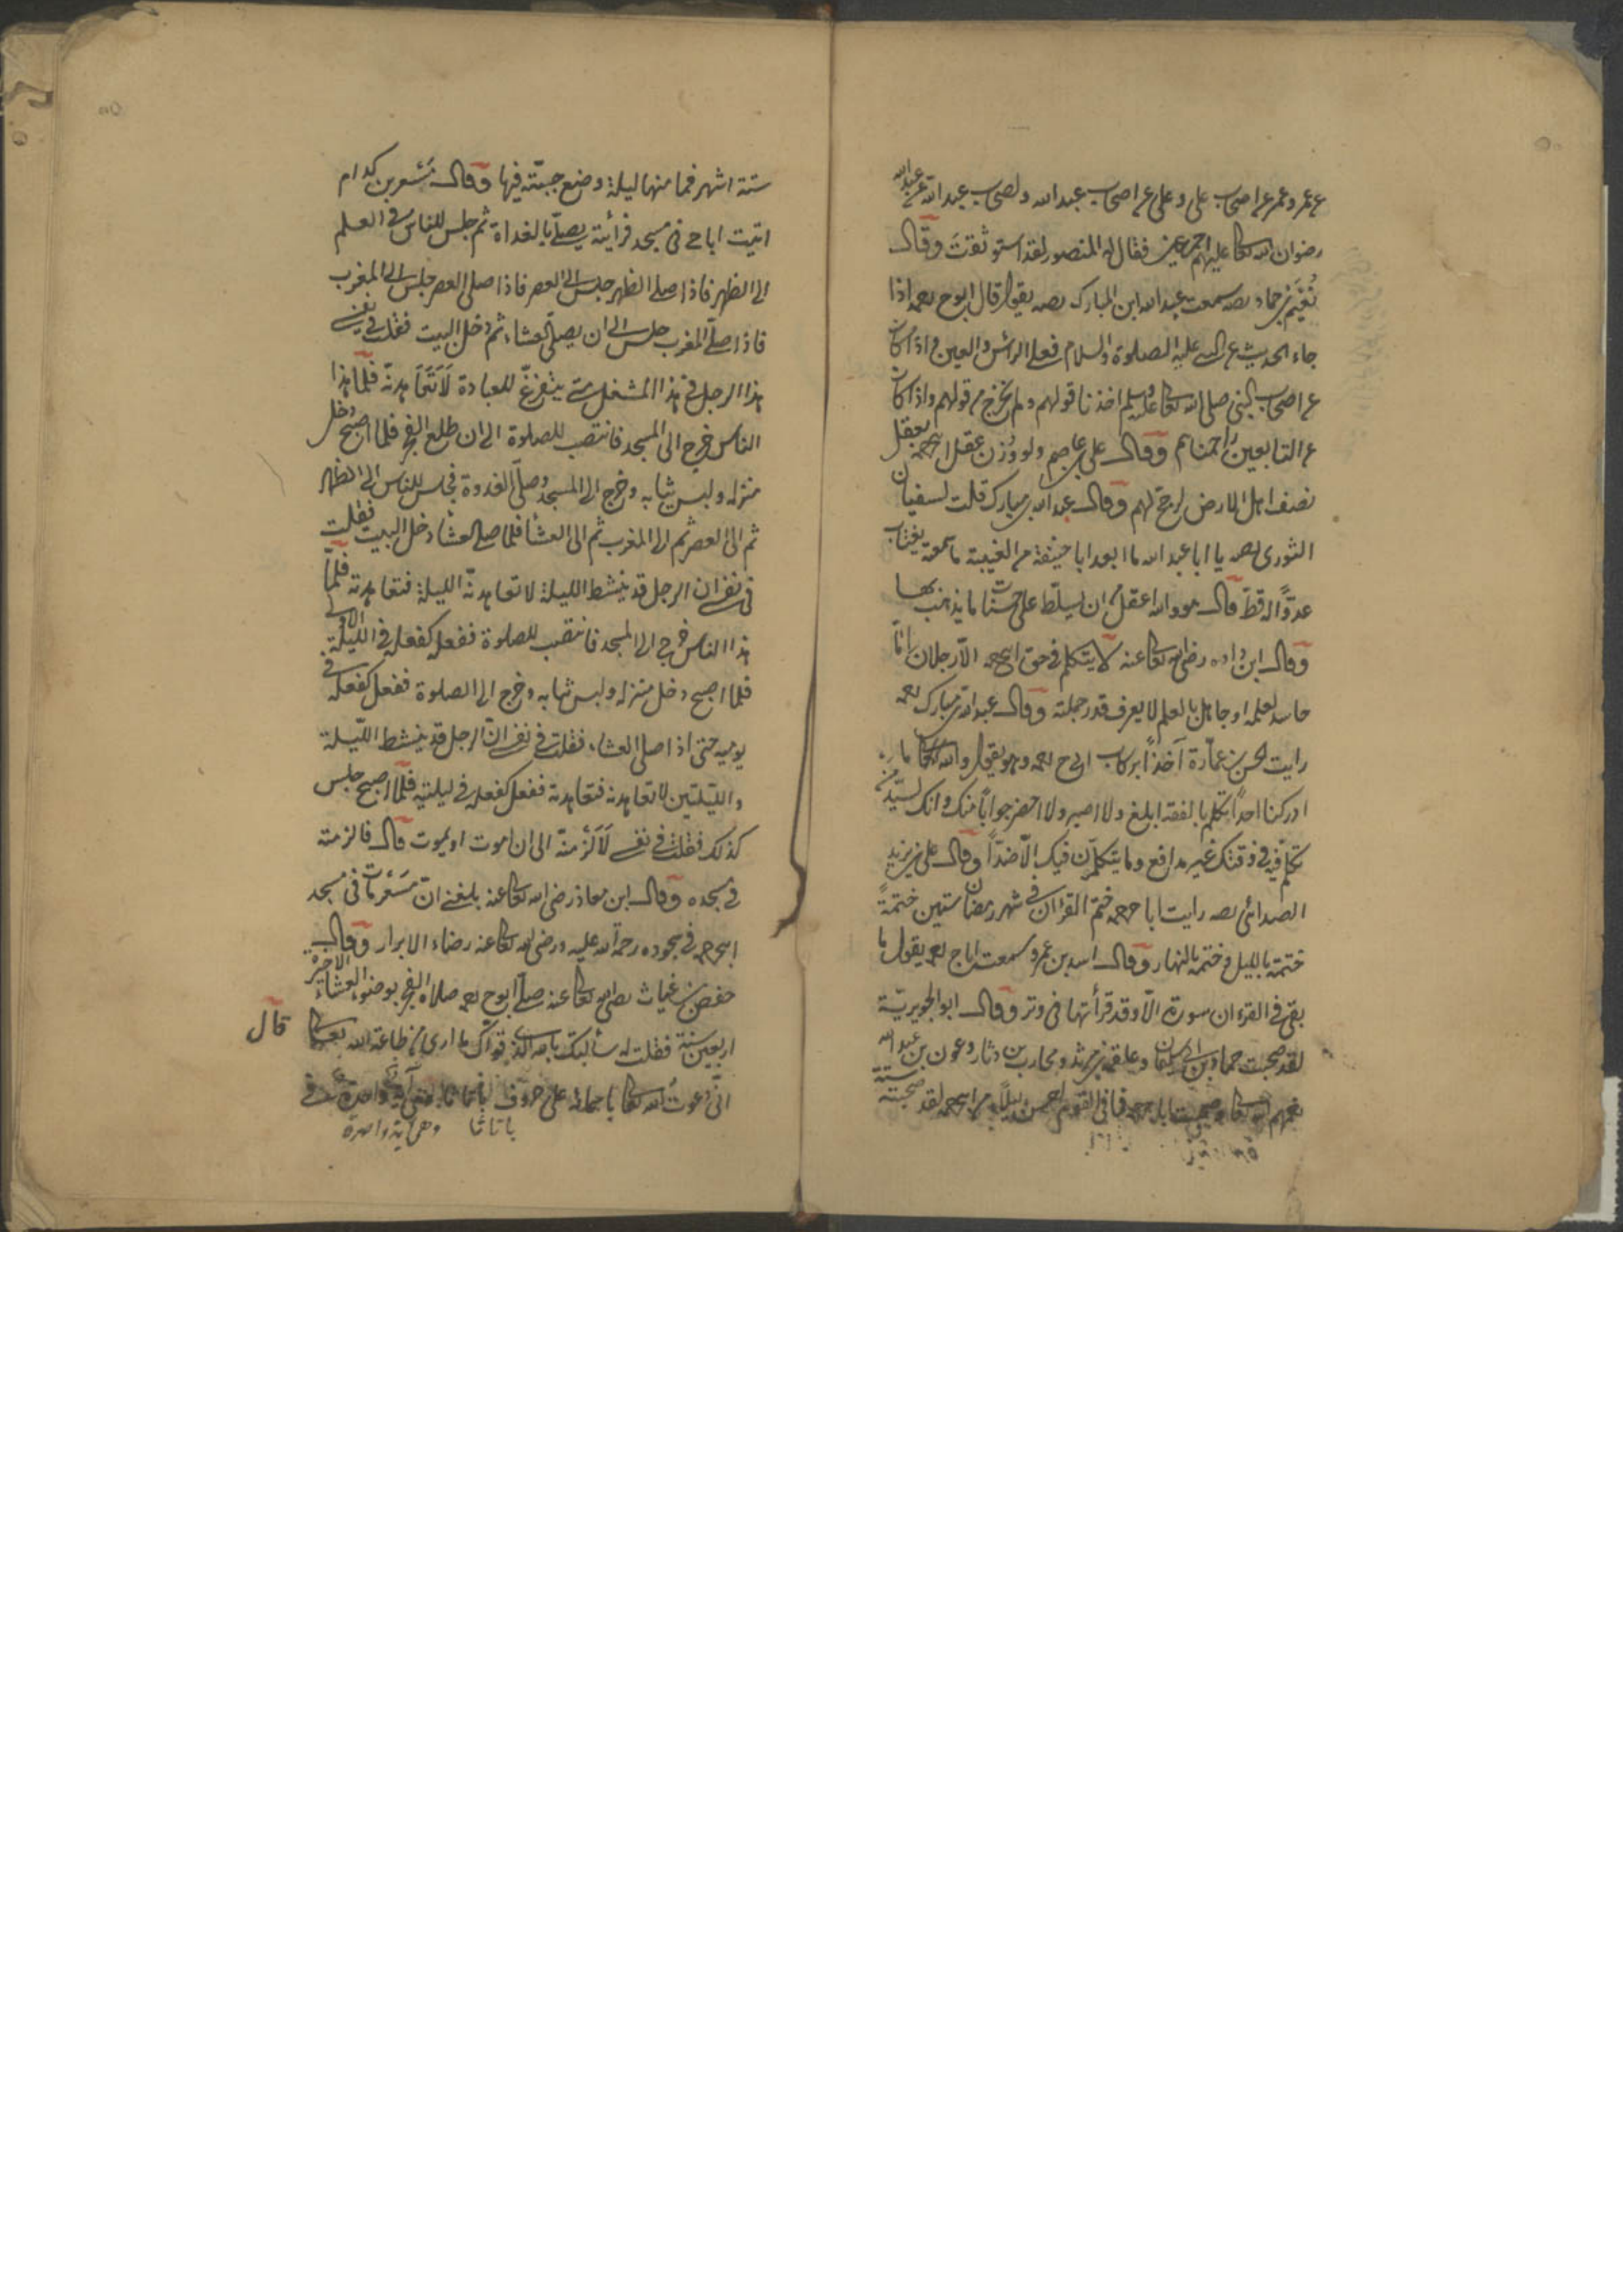 عن عمر وعمر عن اصحاب على وعلى عن اصحاب عبدالله ولصحاب عبدالله عن عبدالله
رضوان الله تعا عليهم اجمعين فقال له المنصور لقد استوثقت وقال
نُعَيْم بن حماد سمعت عبدالله ابن المبارك يقول قال ابوح اذا
جاء الحديث عن النبى عليه الصلوة والسلام فعلى الرأس والعين واذا كان
عن اصحاب النبى صلى الله تعا عليه وسلم اخذنا قولهم ولم نخرج من قولهم واذا كان
عن التابعين زاحمناهم وقال على بن عاصم ولو وُزن عقل ابى ح بعقل
نصف اهل الارض لرجح لهم وقال عبدالله بن مبارك قلت لسفيان
الثورى يا ابا عبدالله ما ابعد ابا حنيفة من الغيبة ما سمعته يغتاب
عدوًّا له قطّ قال هو والله اعقل من ان يسلّط على حسناته ما يذهب بها
وقال ابن داود رضى الله تعا عنه لا يتكلم فى حق ابى ح الّا رجلان امّا
حاسد لعلمه او جاهل بالعلم لا يعرف قدر حملته وقال عبدالله بن مبارك
رايت الحسن بن عمّارة آخذًا بركاب ابى ح وهو يقول والله تعا ما
ادركنا احدًا تكلم بالفقه ابلغ ولا اصبر ولا احضر جوابًا منك وانك لسيّد من
تكلم فيه فى وقتك غير مدافع وما يتكلمون فيك الّا ضدًّا وقال على بن يزيد
الصدائى رايت ابا ح ختم القرآن فى شهر رمضان ستين ختمةً
ختمة بالليل وختمة بالنهار وقال اسد بن عمرو سمعت ابا ح يقول ما
بقى فى القرءان سورة الّا وقد قرأتها فى وتر وقال ابو الجويريّة
لقد صحبت حماد بن ابى سليمان وعلقمة بن مرثد ومحارب بن دثار وعون بن عبدالله
وصحبت ابا ح فما فى القوم احسن ليلًا من ابى ح لقد صحبته ستة
ستة اشهر فما منها ليلة وضع جبته فيها وقال مَسْعر بن كدام
اتيت ابا ح فى مسجد فرأيته يصلّى بالغداة ثم جلس للناس فى العلم
الى الظهر فاذا صلى الظهر جلس الى العصر فاذا صلى العصر جلس الى المغرب
فاذا صلّى المغرب جلس الى ان يصلّى العشاء ثم دخل البيت فقلت فى نفسى
هذا الرجل فى هذا الشغل متى يتفرّغ للعبادة لَاَتَعَاهدنّه فلمّا هذا
الناس خرج الى المسجد فانتصب للصلوة الى ان طلع الفجر فلما اصبح دخل
منزله ولبس ثيابه وخرج الى المسجد وصلّى الغدوة فجلس للناس الى الظهر
ثم الى العصر ثم الى المغرب ثم الى العشا فلما صلى العشا دخل البيت فقلت
فى نفسى ان الرجل قد ينشط الليلة لاتعاهدنّه الليلة فتعاهدته فلمّا
هذا الناس خرج الى المسجد فانتصب للصلوة ففعل كفعله فى الليلة الاولى
فلما اصبح دخل منزله ولبس ثيابه وخرج الى الصلوة ففعل كفعله فى
يوميه حتى اذا صلى العشاء فقلت فى نفسى انّ الرجل قد ينشط اللّيلة
والليلتين لاتعاهدنه فتعاهدته ففعل كفعله فى ليلتيه فلمّا اصبح جلس
كذلك فقلت فى نفسى لَاَلْزمنّه الى ان اموت او يموت قال فالزمته
فى مسجده وقال ابن معاذ رضى الله تعا عنه بلغنى انّ مَسْعر مات فى مسجد
ابى ح فى سجوده رحمة الله عليه ورضى الله تعا عنه رضاء الابرار وقال
حفص بن غياث رضى الله تعا عنه صلّى ابوح صلاة الفجر بوضوء العشاء الاخيرة
اربعين سنة فقلت له سألتك بالله الذى قوّاك ما ارى من طاعة الله تعا قال
انّى دعوت الله تعا باسمائه على حروف واحدة
باتاثا وهى آية واحدة